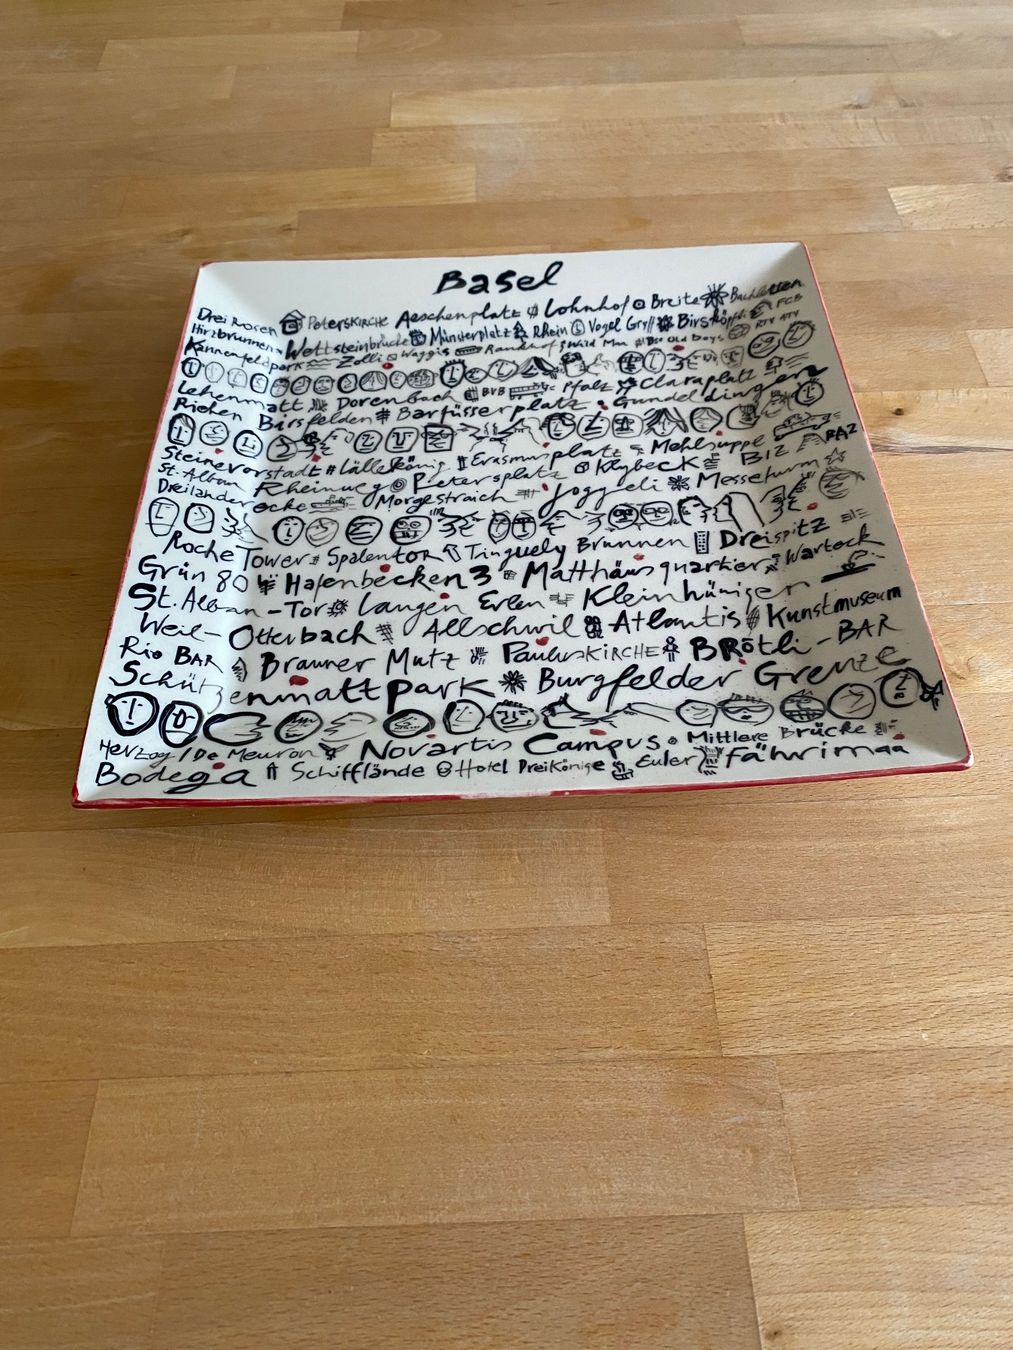 Basel
Drei Rosen Peterskirche Aeschenplatz Lohnhof Breite
Hirzbrunnen Wettsteinbrücke Münsterplatz Rhein Vogel Gryff Birsköpfli FCB
Kannenfeldpark Zolli Waggis Wild Maa Old Boys RTV ATV
Lehenmatt Dorenbach BVB Pfalz Claraplatz
Riehen Birsfelden Barfüsserplatz Gundeldingen
Steinenvorstadt Lällekönig Erasmusplatz Mehlsuppe BAZ
St. Alban Rheinweg Petersplatz Klybeck BIZ
Dreiländerecke Morgestraich Joggeli Messeturm
Roche Tower Spalentor Tinguely Brunnen Dreispitz
Grün 80 Hafenbecken 3 Matthäusquartier Warteck
St. Alban-Tor Langen Erlen Kleinhüniger
Weil-Otterbach Allschwil Atlantis Kunstmuseum
Rio BAR Brauner Mutz Pauluskirche BRötli-BAR
Schützenmattpark Burgfelder Grenze
Herzog/De Meuron Novartis Campus Mittlere Brücke
Bodega Schifflände Hotel Dreikönige Euler Fährimaa